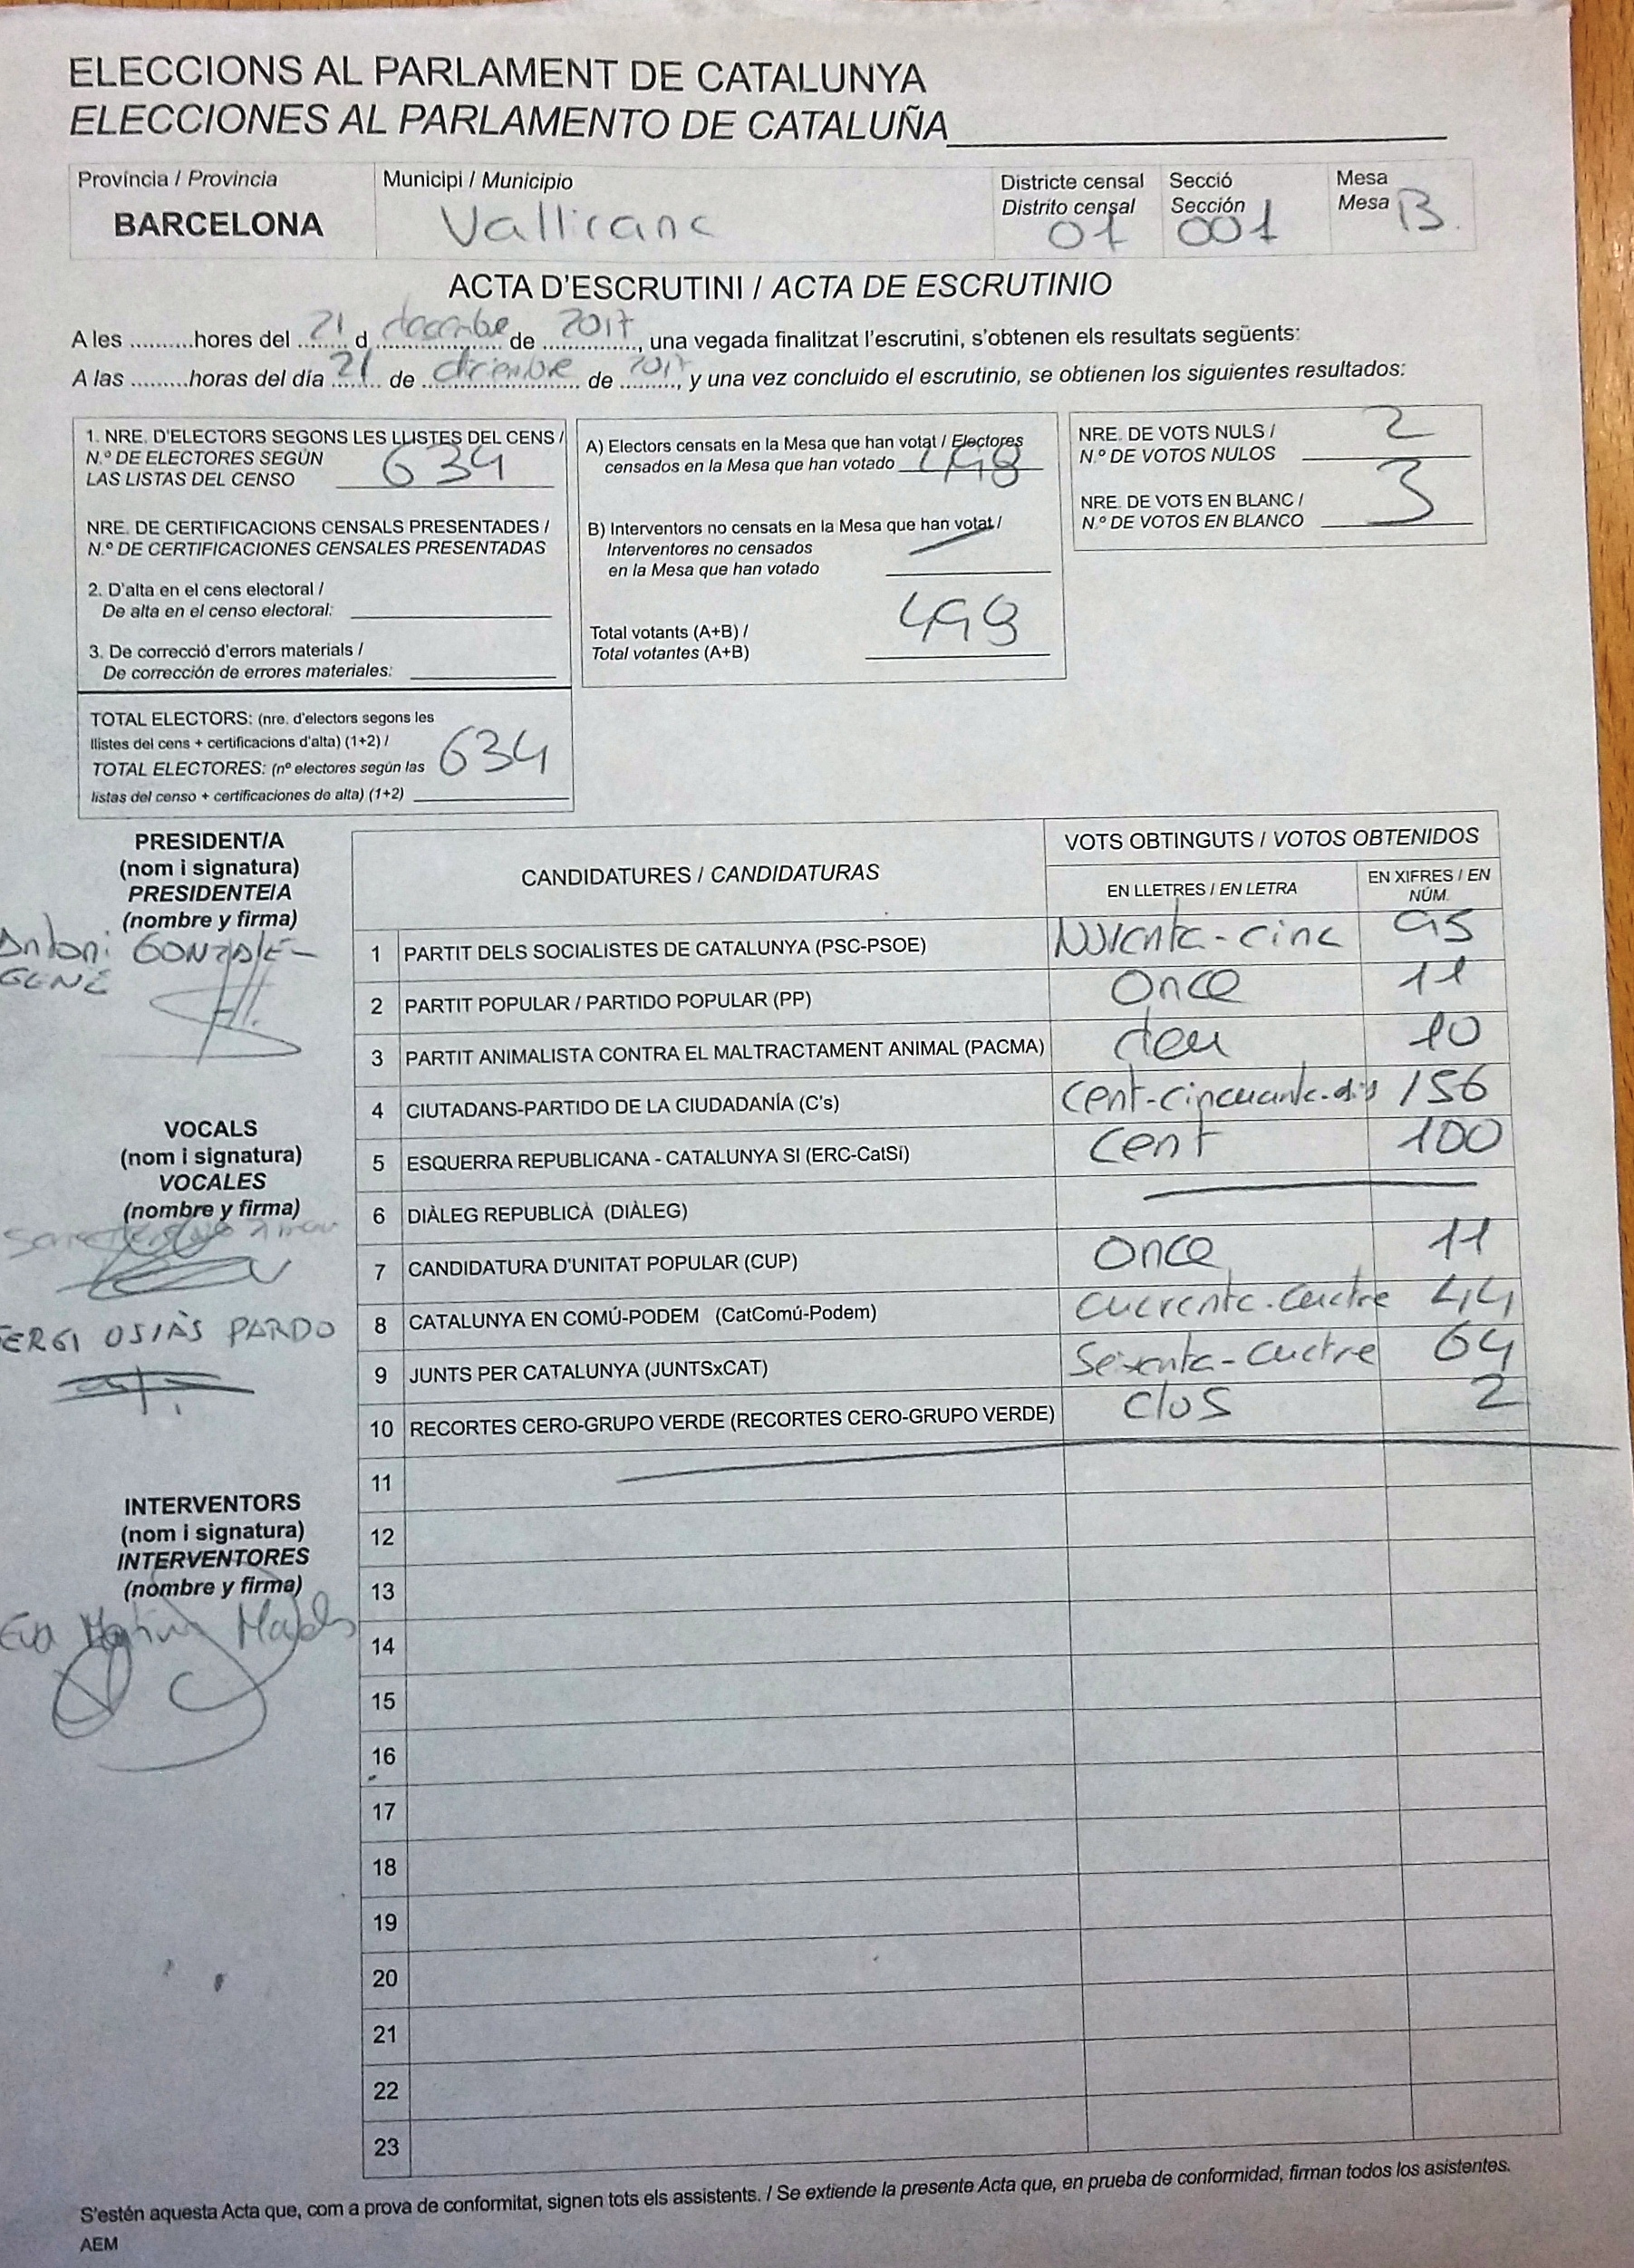 ELECCIONS AL PARLAMENT DE CATALUNYA
ELECCIONES AL PARLAMENTO DE CATALUÑA
Província / Provincia
BARCELONA
Municipi / Municipio
Vallirana
Districte censal
Distrito censal
01
Secció
Sección
001
Mesa
Mesa
B.
ACTA D'ESCRUTINI / ACTA DE ESCRUTINIO
A les ..........hores del 21 d desembre de 2017, una vegada finalitzat l'escrutini, s'obtenen els resultats següents:
A las .........horas del día 21 de diciembre de 2017, y una vez concluido el escrutinio, se obtienen los siguientes resultados:
1. NRE. D'ELECTORS SEGONS LES LLISTES DEL CENS /
N.º DE ELECTORES SEGÚN
LAS LISTAS DEL CENSO 634
NRE. DE CERTIFICACIONS CENSALS PRESENTADES /
N.º DE CERTIFICACIONES CENSALES PRESENTADAS
2. D'alta en el cens electoral /
De alta en el censo electoral:
3. De correcció d'errors materials /
De corrección de errores materiales:
TOTAL ELECTORS: (nre. d'electors segons les
llistes del cens + certificacions d'alta) (1+2) /
TOTAL ELECTORES: (nº electores según las
listas del censo + certificaciones de alta) (1+2)
634
A) Electors censats en la Mesa que han votat / Electores
censados en la Mesa que han votado 498
B) Interventors no censats en la Mesa que han votat /
Interventores no censados
en la Mesa que han votado
Total votants (A+B) /
Total votantes (A+B)
498
NRE. DE VOTS NULS /
N.º DE VOTOS NULOS 2
NRE. DE VOTS EN BLANC /
N.º DE VOTOS EN BLANCO 3
PRESIDENT/A
(nom i signatura)
PRESIDENTE/A
(nombre y firma)
Antoni GONZALE-
GENÉ
VOCALS
(nom i signatura)
VOCALES
(nombre y firma)
SERGI OSIÀS PARDO
INTERVENTORS
(nom i signatura)
INTERVENTORES
(nombre y firma)
Eva
CANDIDATURES / CANDIDATURAS
VOTS OBTINGUTS / VOTOS OBTENIDOS
EN LLETRES / EN LETRA
EN XIFRES / EN
NÚM.
1 PARTIT DELS SOCIALISTES DE CATALUNYA (PSC-PSOE) Noranta-cinc 95
2 PARTIT POPULAR / PARTIDO POPULAR (PP) Once 11
3 PARTIT ANIMALISTA CONTRA EL MALTRACTAMENT ANIMAL (PACMA) deu 10
4 CIUTADANS-PARTIDO DE LA CIUDADANÍA (C's) Cent-cincuanta-sis 156
5 ESQUERRA REPUBLICANA - CATALUNYA SI (ERC-CatSí) Cent 100
6 DIÀLEG REPUBLICÀ (DIÀLEG)
7 CANDIDATURA D'UNITAT POPULAR (CUP) Once 11
8 CATALUNYA EN COMÚ-PODEM (CatComú-Podem) Cuarenta-cuatre 44
9 JUNTS PER CATALUNYA (JUNTSxCAT) Seixanta-cuatre 64
10 RECORTES CERO-GRUPO VERDE (RECORTES CERO-GRUPO VERDE) dos 2
11
12
13
14
15
16
17
18
19
20
21
22
23
S'estén aquesta Acta que, com a prova de conformitat, signen tots els assistents. / Se extiende la presente Acta que, en prueba de conformidad, firman todos los asistentes.
AEM